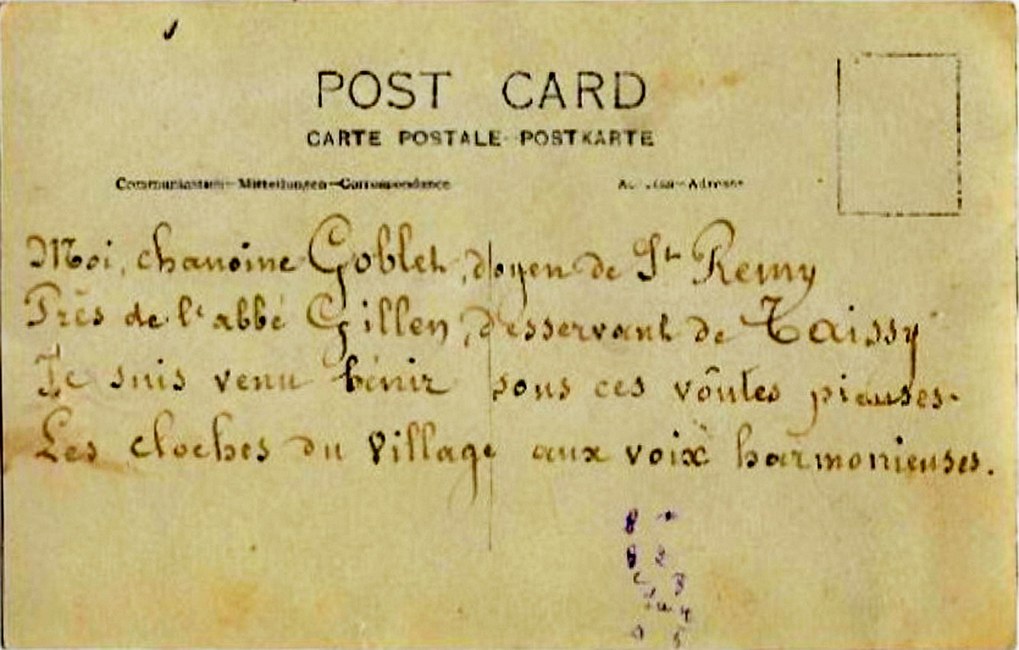 POST CARD
CARTE POSTALE-POSTKARTE
Communication-Mitteilungen-Correspondance
Adresse
Moi, chanoine Goblet, doyen de St Remy
Près de l'abbé Gillen, desservant de Taissy
Je suis venu bénir sous ces voûtes pieuses.
Les cloches du village aux voix harmonieuses.